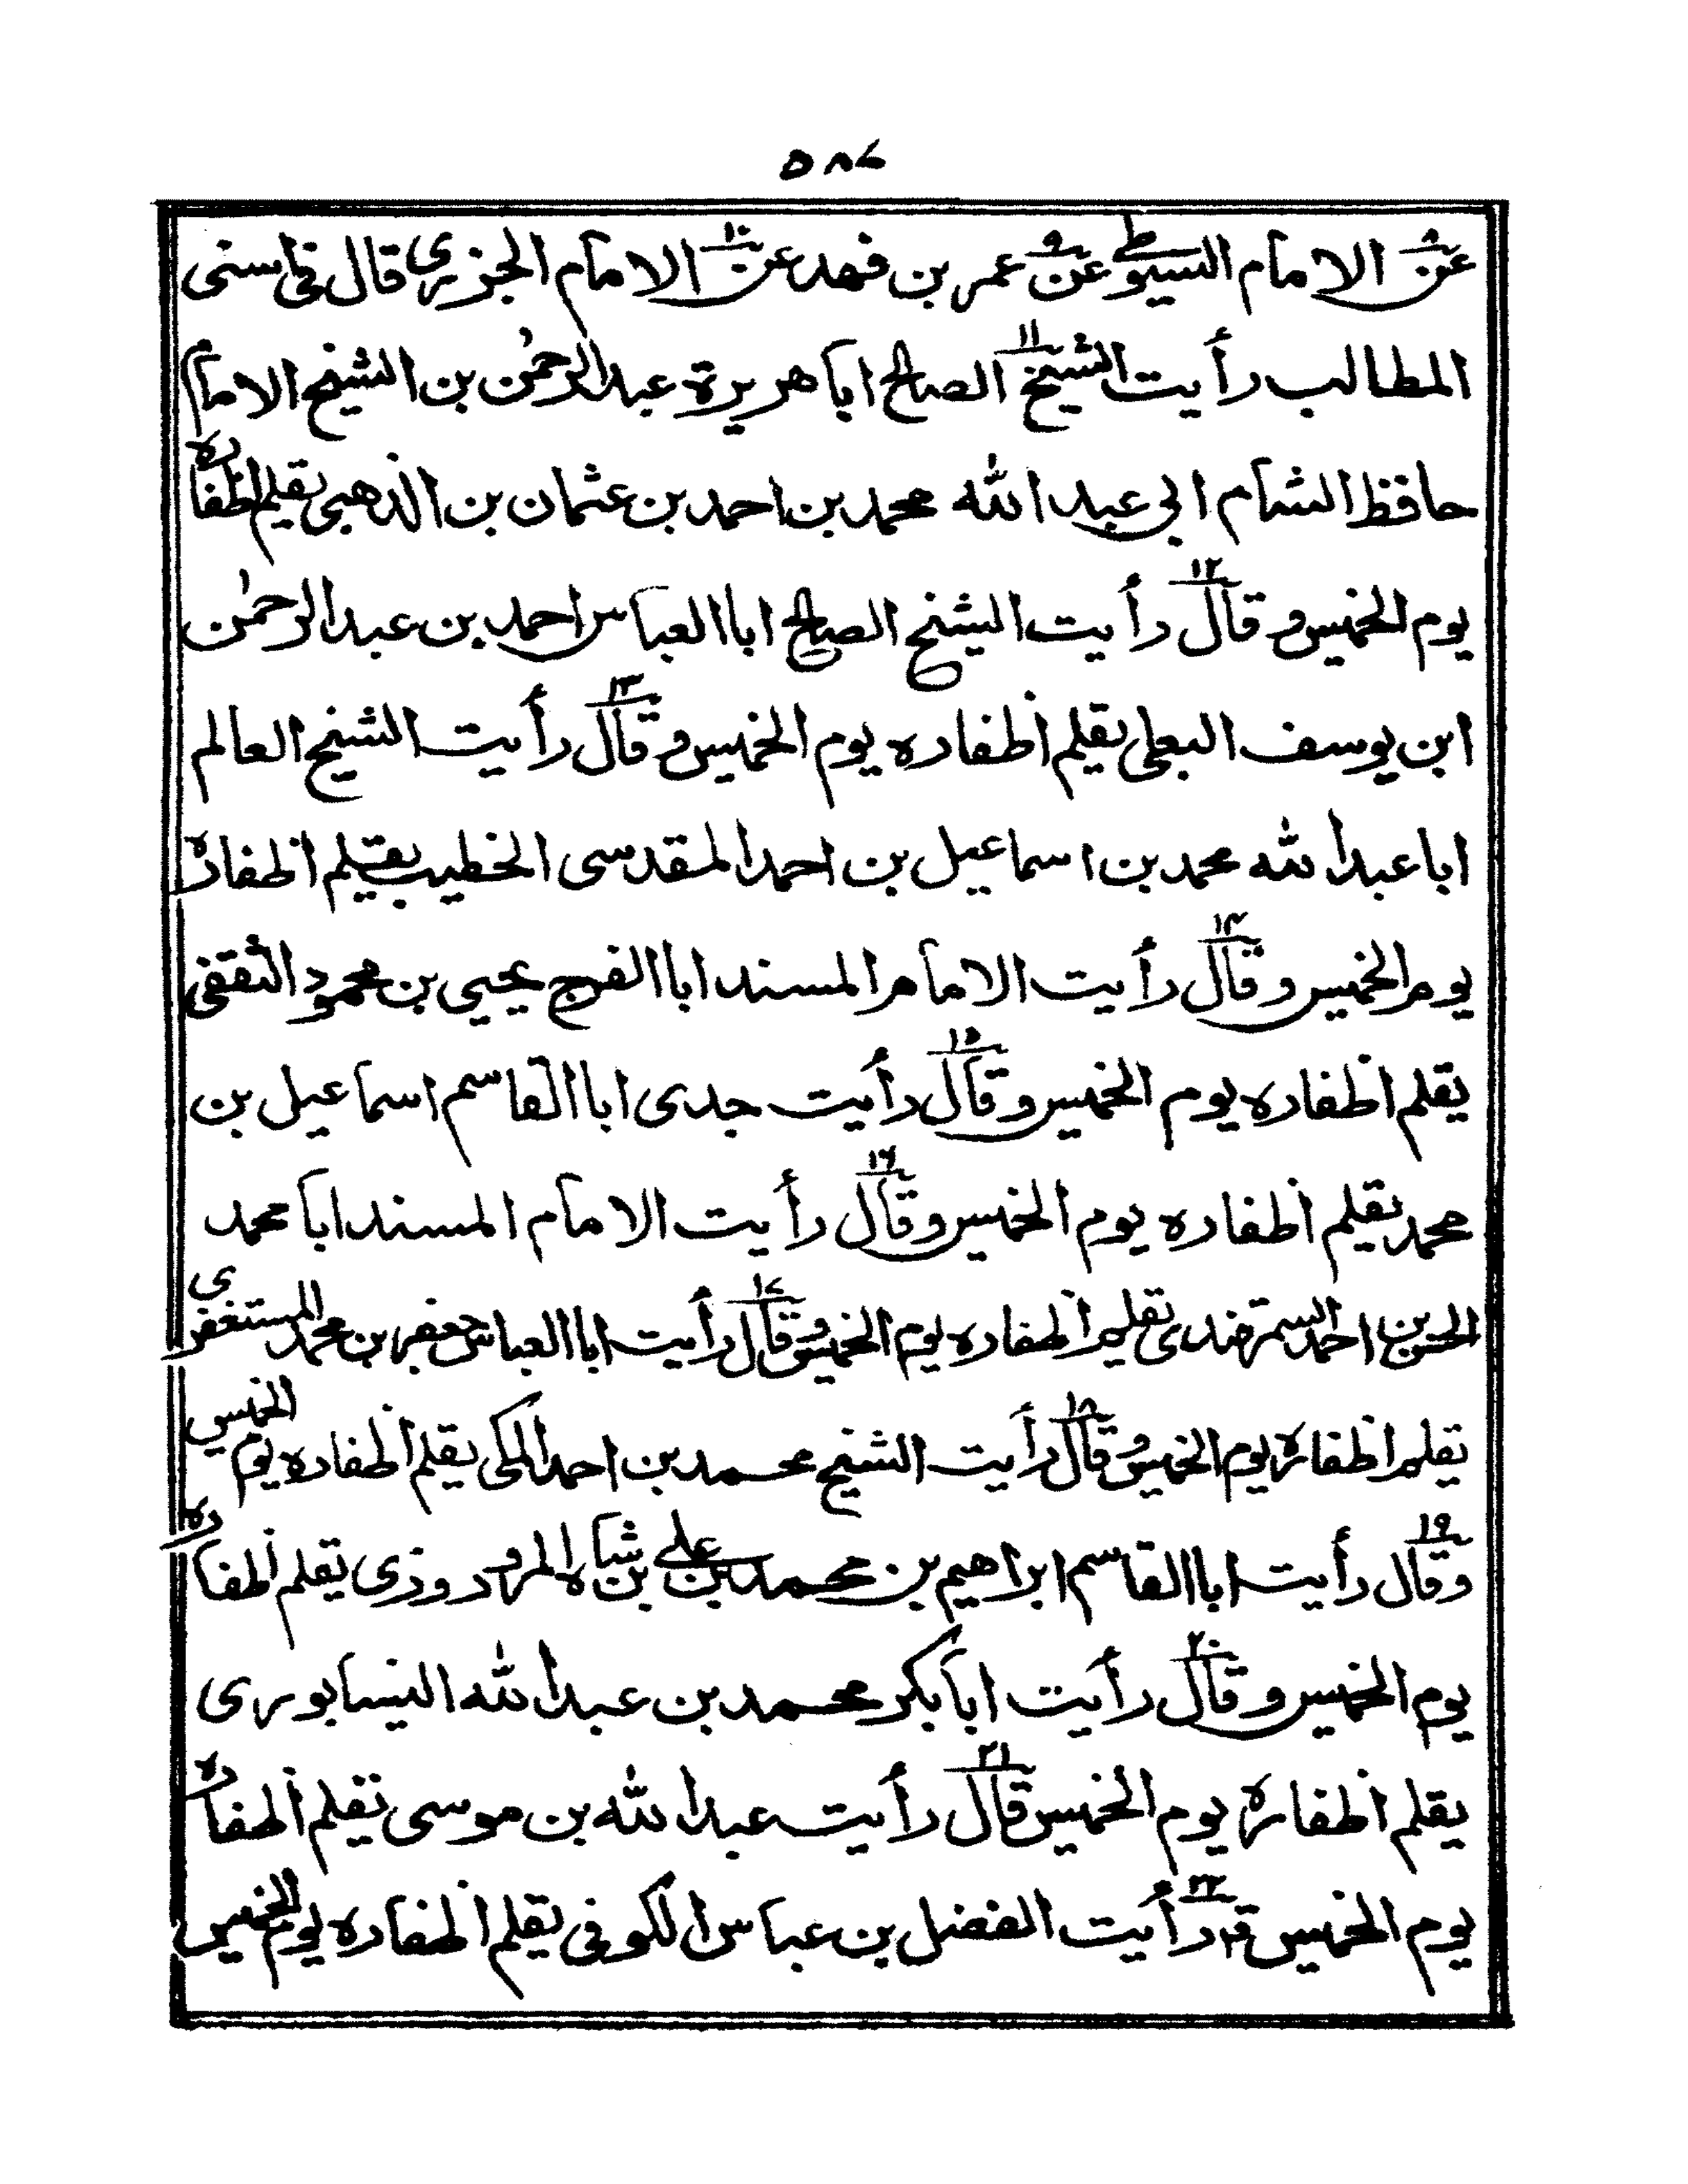 ٥٨٧
عن الامام السيوطي عن عمر بن فهد عن الامام الجزيري قال في اسنى
المطالب رأيت الشيخ الصالح ابا هريرة عبد الرحمٰن بن الشيخ الامام
حافظ الشام ابي عبد الله محمد بن احمد بن عثمان بن الذهبي يقلم اظفاره
يوم الخميس وقال رأيت الشيخ الصالح ابا العباس احمد بن عبد الرحمٰن
ابن يوسف البعلي يقلم اظفاره يوم الخميس وقال رأيت الشيخ العالم
ابا عبد الله محمد بن اسماعيل بن احمد المقدسى الخطيب يقلم اظفاره
يوم الخميس وقال رأيت الامام المسند ابا الفرج يحيي بن محمود الثقفي
يقلم اظفاره يوم الخميس وقال رأيت جدى ابا القاسم اسماعيل بن
محمد يقلم اظفاره يوم الخميس وقال رأيت الامام المسند ابا محمد
الحسن بن احمد السمرقندى يقلم اظفاره يوم الخميس وقال رأيت ابا العباس جعفر بن محمد المستغفرى
يقلم اظفاره يوم الخميس وقال رأيت الشيخ محمد بن احمد المكى يقلم اظفاره يوم الخميس
وقال رأيت ابا القاسم ابراهيم بن محمد بن علي بن شاه المروروذى يقلم اظفاره
يوم الخميس وقال رأيت ابا بكر محمد بن عبد الله النيسابورى
يقلم اظفاره يوم الخميس قال رأيت عبد الله بن موسى يقلم اظفاره
يوم الخميس قال رأيت الفضل بن عباس الكوفي يقلم اظفاره يوم الخميس